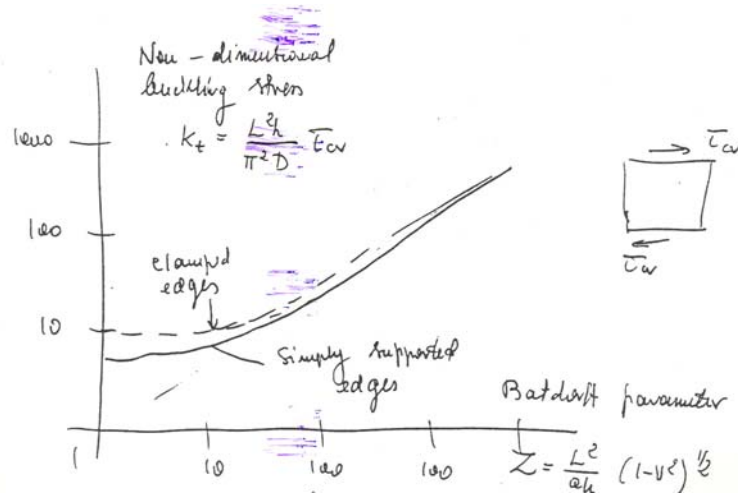 Non-dimentional
buckling stress
k_t = L²h / π²D τ_cr
1000
100
10
clamped
edges
Simply supported
edges
τ_cr
τ_cr
Batdorff parameter
1
10
100
100
Z = L²/ah (1-ν²)^1/2